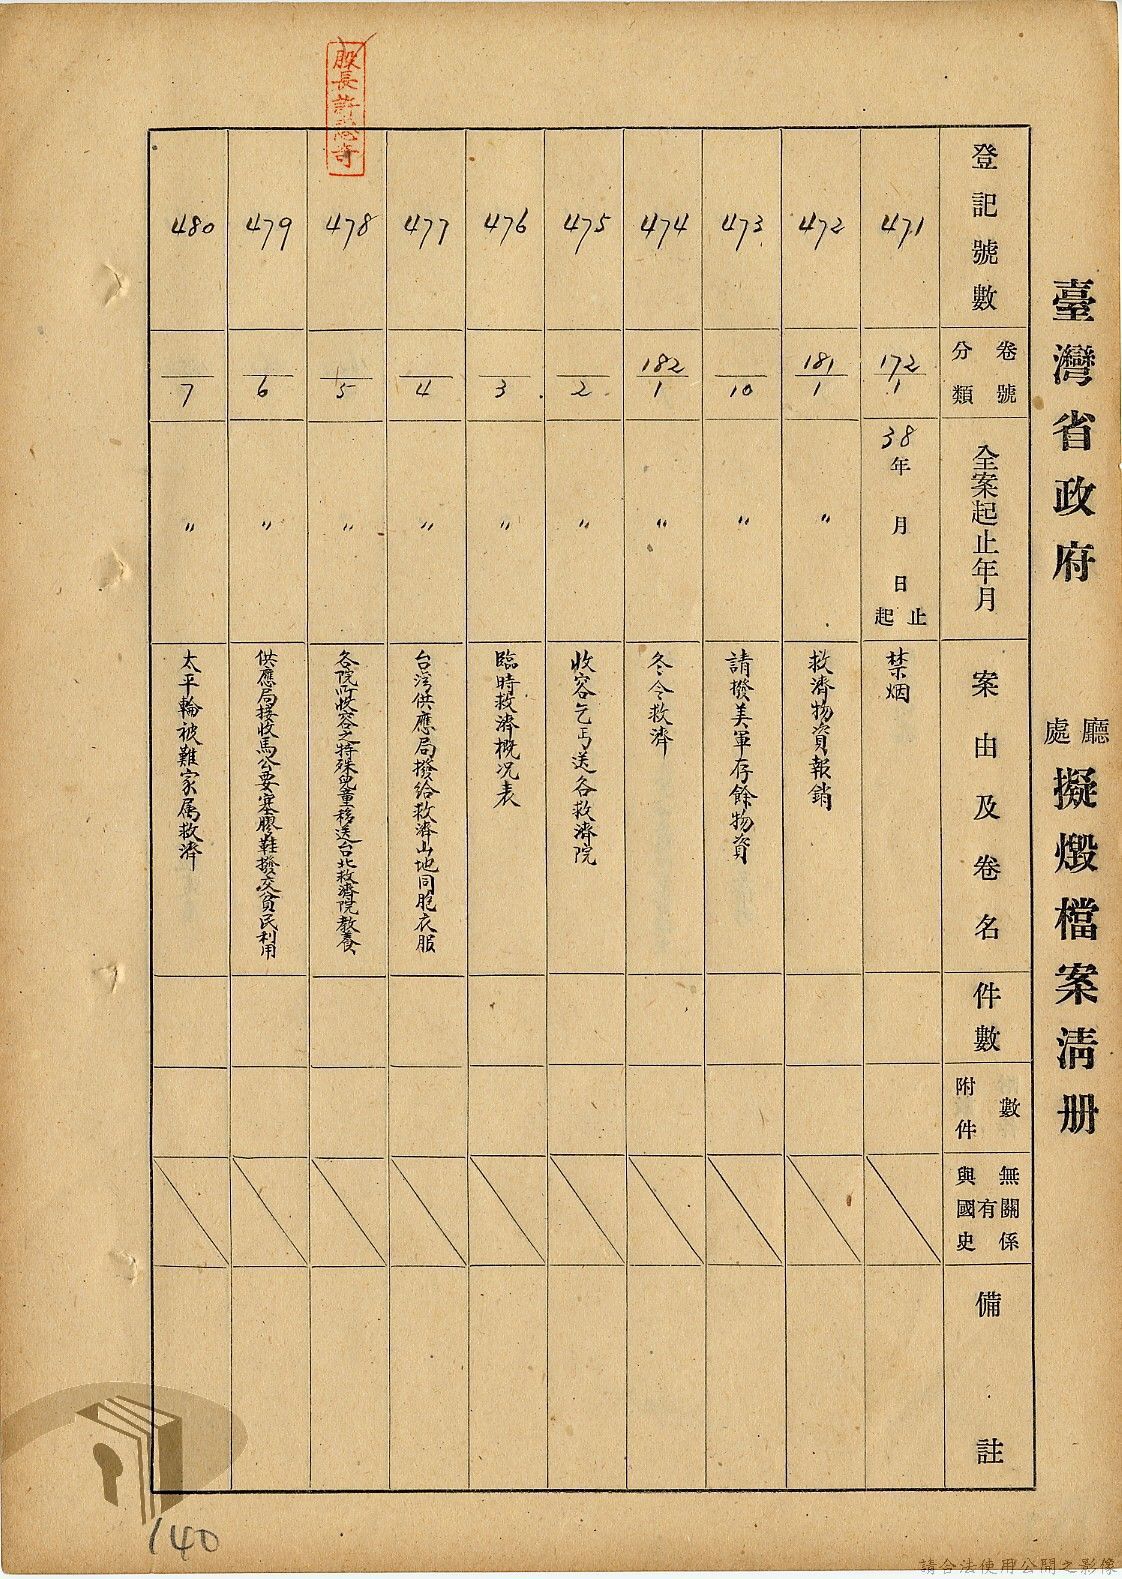 臺灣省政府 廳處 擬燬檔案清册
登記號數 卷號分類 全案起止年月 案由及卷名 件數 附件數 與國史有無關係 備註
471 172/1 38年 月 日起止 禁烟
472 181/1 〃 救濟物資報銷
473 /10 〃 請撥美軍存餘物資
474 182/1 〃 冬令救濟
475 /2 〃 收容乞丐送各救濟院
476 /3 〃 臨時救濟概况表
477 /4 〃 台湾供應局撥給救濟山地同胞衣服
478 /5 〃 各院所收容之特殊兒童移送台北救濟院教養
479 /6 〃 供應局接收馬公要塞膠鞋撥交貧民利用
480 /7 〃 太平輪被難家属救濟
股長許奇
140
請合法使用公開之影像